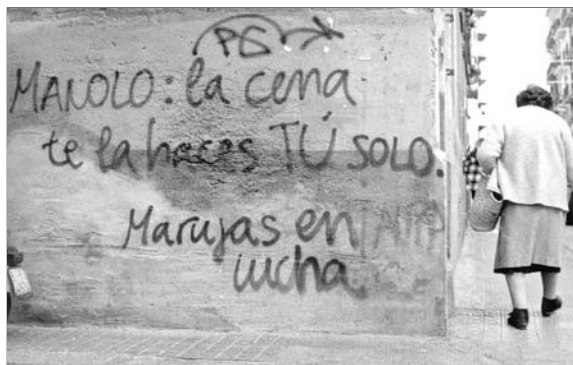 PG
MANOLO: la cena
te la haces TÚ SOLO.
Marujas en
lucha.